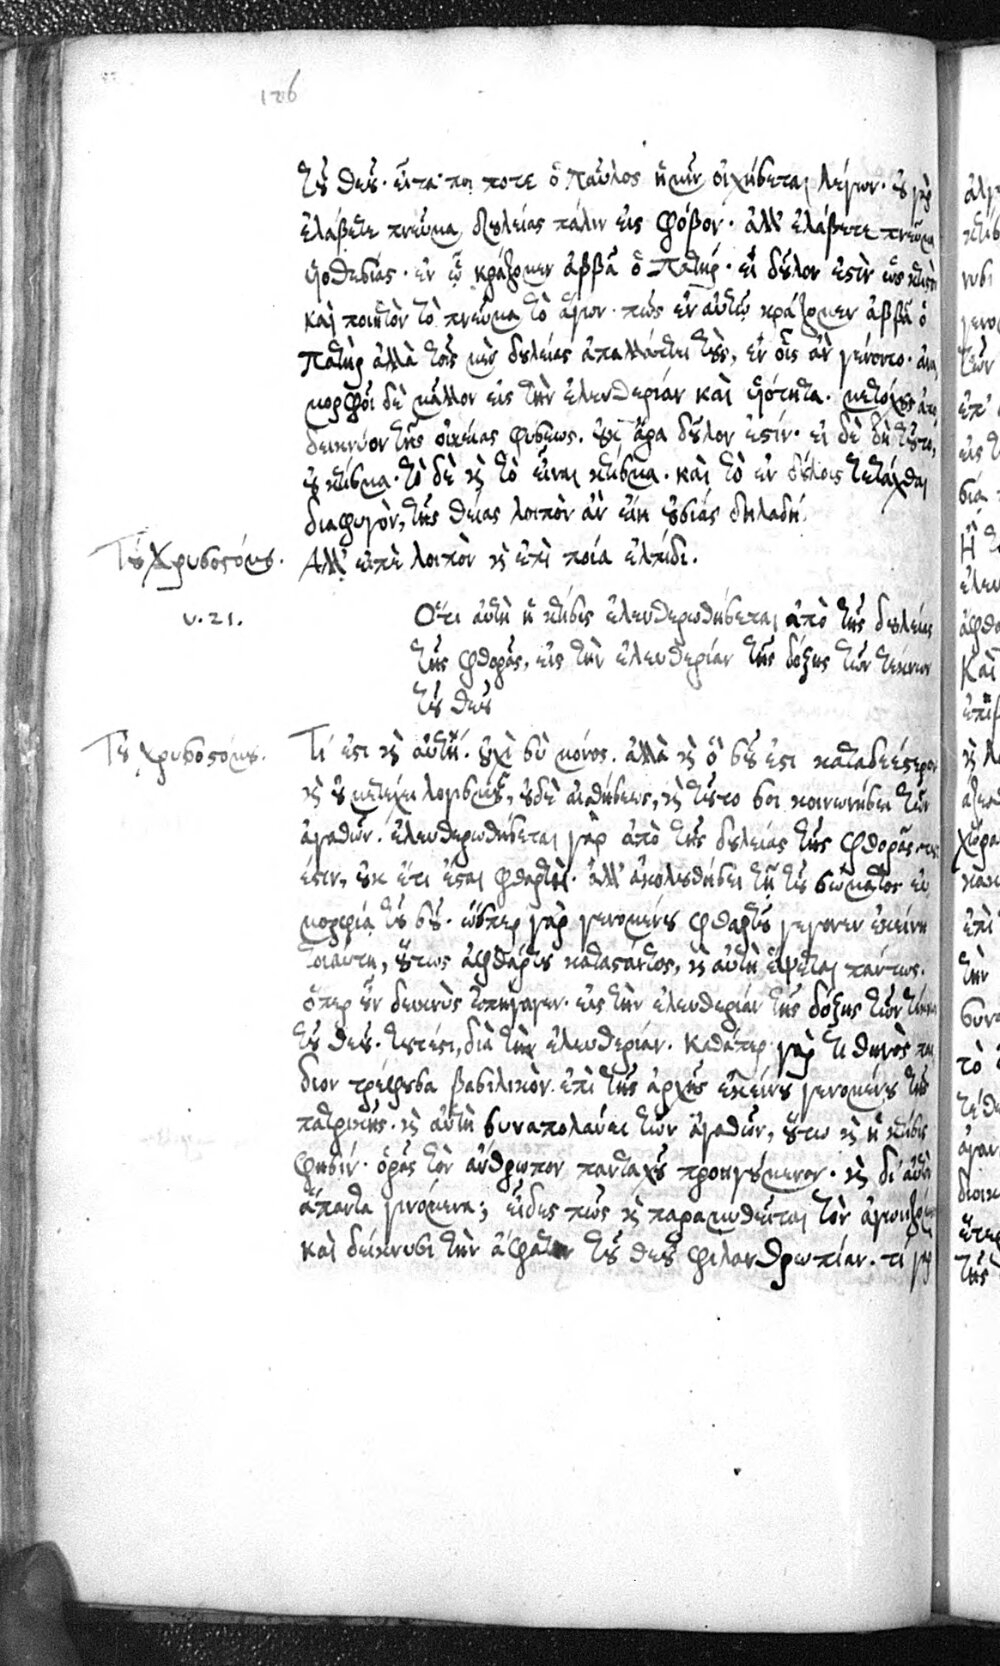 126
τοῦ θεοῦ. εἶτα πῆ ποτε ὁ Παῦλος ἡμῖν οἰχήσεται λέγων. οὐ γὰρ
ἐλάβετε πνεῦμα δουλείας πάλιν εἰς φόβον. ἀλλ' ἐλάβετε πνεῦμα
υἱοθεσίας. ἐν ᾧ κράζομεν ἀββᾶ ὁ Πατήρ. εἰ δοῦλον ἐστὶν ὡς κτιστὸν
καὶ ποιητὸν τὸ πνεῦμα τὸ ἅγιον. πῶς ἐν αὐτῷ κράζομεν ἀββᾶ ὁ
Πατὴρ ἀλλὰ τῆς μὲν δουλείας ἀπαλλάττει τοὺς, ἐν οἷς ἂν γένοιτο. ἀνα
μορφοῖ δὲ μᾶλλον εἰς τὴν ἐλευθερίαν καὶ υἱότητα. μετόχους ἀπο
δεικνύον τῆς οἰκείας φύσεως. οὐκ ἄρα δοῦλον ἐστίν. εἰ δὲ δὴ τοῦτο,
οὐ κτίσμα. τὸ δὲ καὶ τὸ εἶναι κτίσμα. καὶ τὸ ἐν δούλοις τετάχθαι
διαφυγὸν, τῆς θείας λοιπὸν ἂν εἴη οὐσίας δηλαδή.
Τοῦ Χρυσοστόμου. Ἀλλ' εἰπὲ λοιπὸν καὶ ἐπὶ ποίᾳ ἐλπίδι.
v. 21. Ὅτι αὐτὴ ἡ κτίσις ἐλευθερωθήσεται ἀπὸ τῆς δουλείας
τῆς φθορᾶς, εἰς τὴν ἐλευθερίαν τῆς δόξης τῶν τέκνων
τοῦ θεοῦ
Τοῦ Χρυσοστόμου. Τί ἐστι καὶ αὐτή. οὐχὶ σὺ μόνος. ἀλλὰ καὶ ὅ σου ἐστι καταδεέστερον
καὶ οὐ μετέχει λογισμοῦ, οὐδὲ αἰσθήσεως, καὶ τοῦτό σοι κοινωνήσει τῶν
ἀγαθῶν. ἐλευθερωθήσεται γὰρ ἀπὸ τῆς δουλείας τῆς φθορᾶς τουτ
έστιν, οὐκ ἔτι ἔσται φθαρτὴ. ἀλλ' ἀκολουθήσει τῇ τοῦ σώματος εὐ
μορφίᾳ τοῦ σοῦ. ὥσπερ γὰρ γενομένου φθαρτοῦ γέγονεν ἐκείνη
τοιαύτη, οὕτως ἀφθάρτου καταστάντος, καὶ αὐτὴ ἕψεται πάντως.
ὅπερ οὖν δεικνὺς ἐπήγαγεν. εἰς τὴν ἐλευθερίαν τῆς δόξης τῶν τέκνων
τοῦ θεοῦ. τουτέστι, διὰ τὴν ἐλευθερίαν. Καθάπερ γὰρ τιθηνὸς παι
δίον τρέφουσα βασιλικὸν ἐπὶ τῆς ἀρχῆς ἐκείνου γενομένου τῆς
πατρικῆς. καὶ αὐτὴ συναπολαύει τῶν ἀγαθῶν, οὕτω καὶ ἡ κτίσις
φησίν. ὁρᾷς τὸν ἄνθρωπον πανταχοῦ προηγούμενον. καὶ δι' αὐτὸν
ἅπαντα γινόμενα; εἶδες πῶς καὶ παραμυθεῖται τὸν ἀγωνιζόμενον
καὶ δείκνυσι τὴν ἄφατον τοῦ θεοῦ φιλανθρωπίαν. τί γὰρ